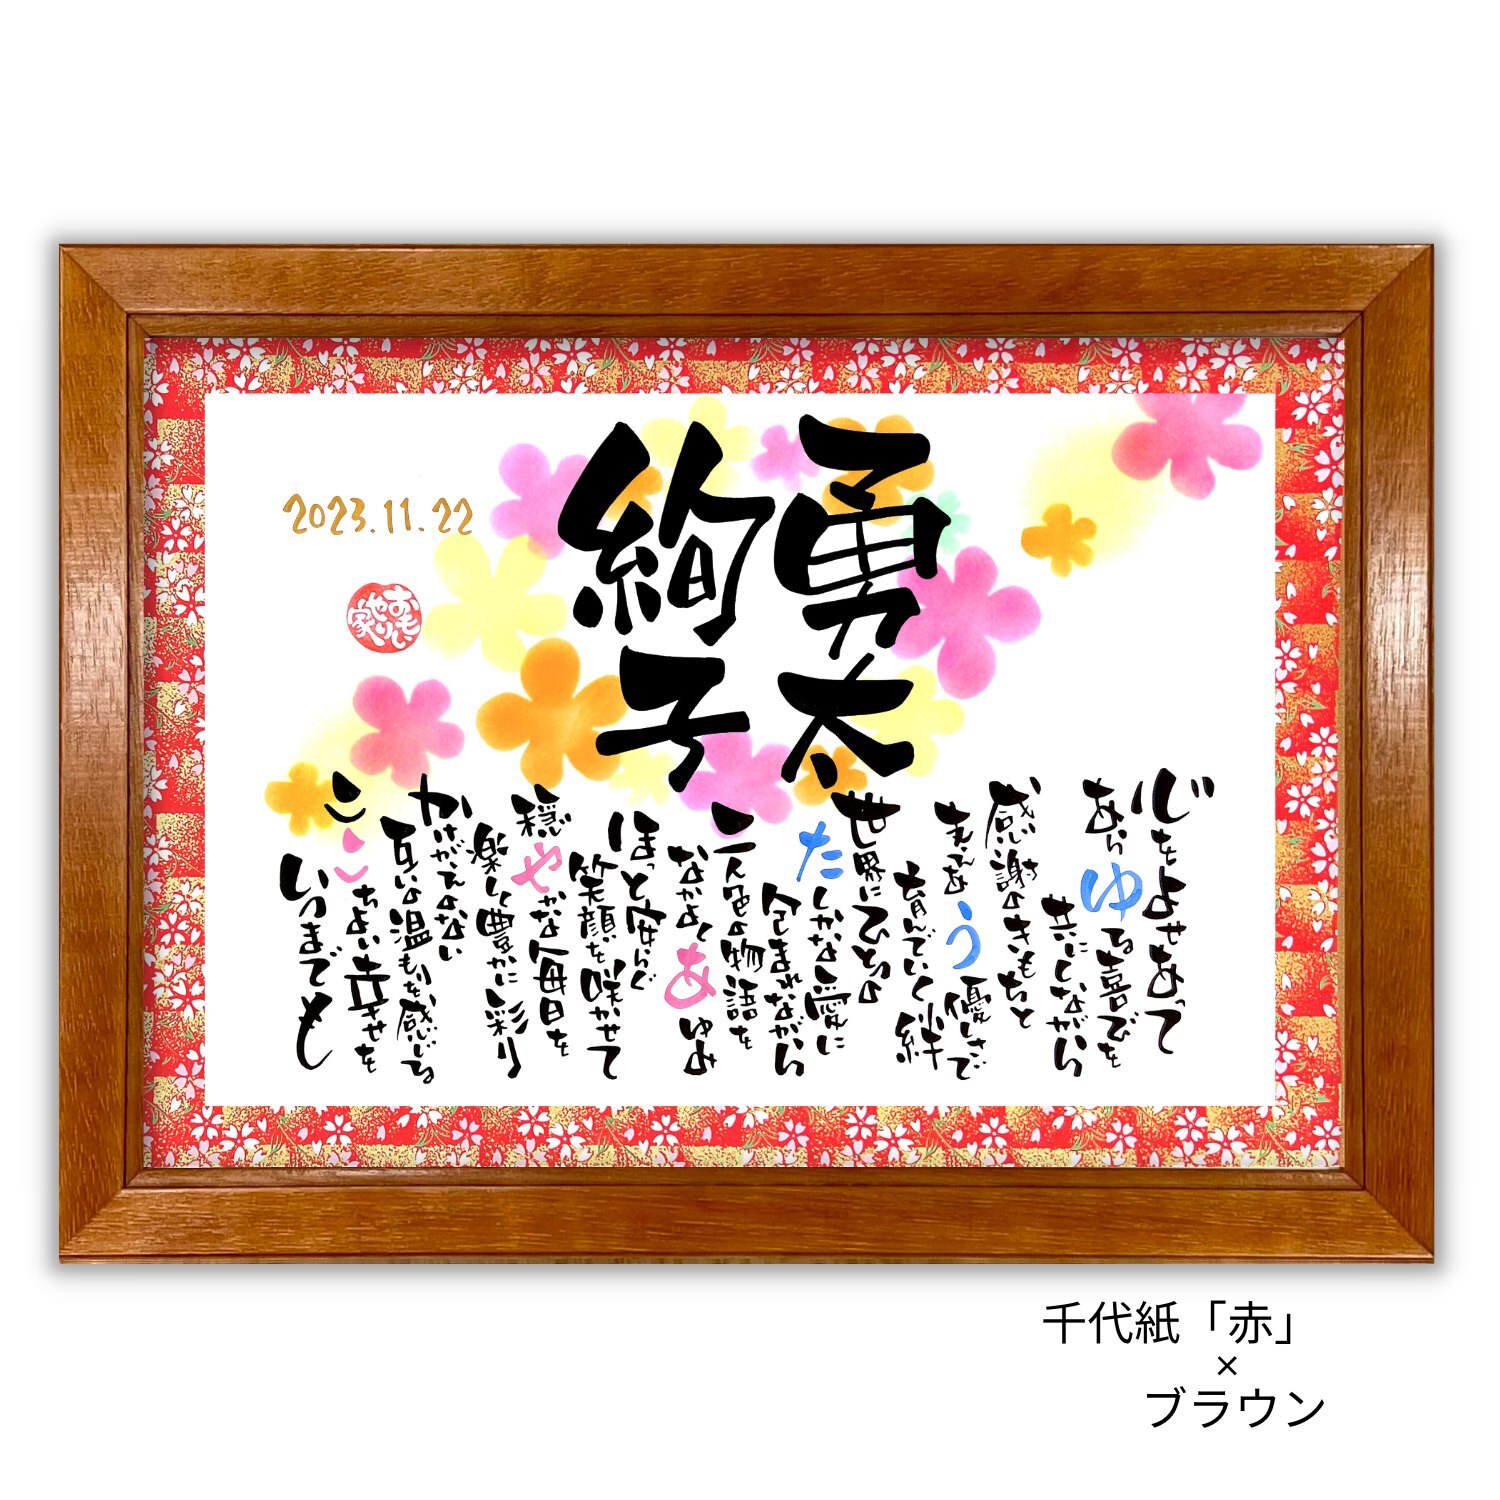 勇太
絢子
2023.11.22
おもいやり家
心をよせあって
あらゆる喜びを
共にしながら
感謝のきもちと
まっすぐな優しさで
育んでいく絆
世界にひとつの
たしかな愛に
包まれながら
二人色の物語を
なかよくあゆみ
ほっと安らぐ
笑顔を咲かせて
穏やかな毎日を
楽しく豊かに彩り
かけがえのない
互いの温もりを感じる
ここちよい幸せを
いつまでも
千代紙「赤」
×
ブラウン